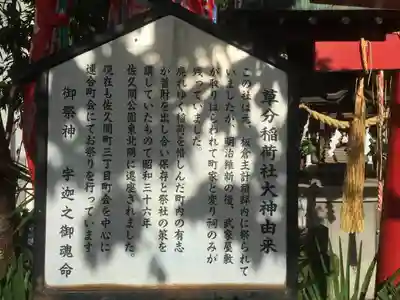 草分稲荷社大神由来
この社は元、板倉主計頭邸内に祭られて
いましたが、明治維新の後、武家屋敷
が取りはらわれて町家と変り祠のみが
残っていました。
廃れゆく稲荷を惜しんだ町内の有志
が資財を出し合い保存と祭社の策を
講じていたもので昭和三十六年
佐久間公園東北隅に遷座されました。
現在も佐久間町三丁目町会を中心に
連合町会にてお祭りを行っています
御祭神 宇迦之御魂命